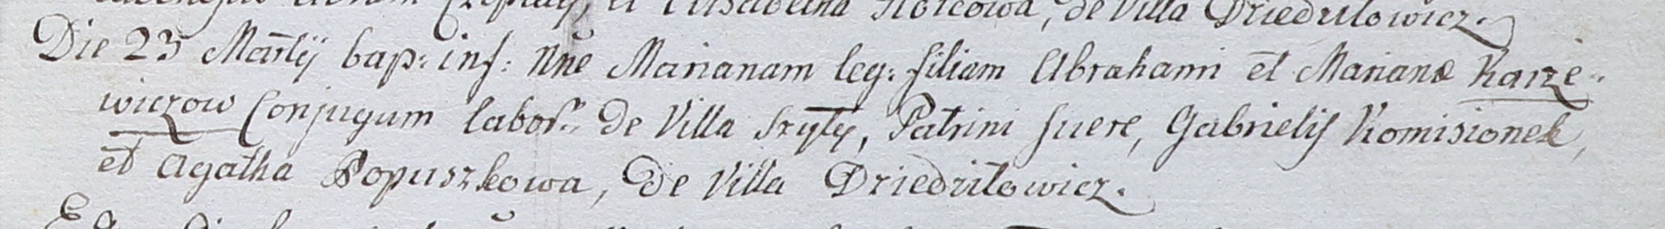 et Elisabetha Horcowa, de Villa Dziedzilowicz.
Die 23 Martij bap: inf: Nne Marianam leg: filiam Abrahami et Marianæ Karze-
wiczow Conjugum labor: de Villa Szyły, Patrini fuere, Gabrielis Komisionek,
et Agatha Popuszkowa, de Villa Dziedziłowicz.